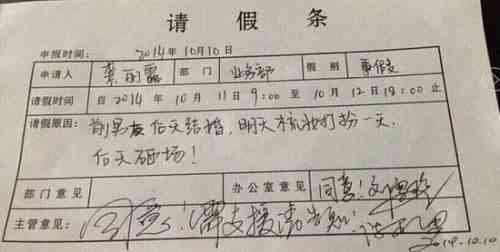 请假条
申报时间： 2014年10月10日
申请人 葉丽露 部门 业务部 假别 事假
请假时间 自2014年10月11日9:00至10月12日18:00止
请假原因： 前男友后天结婚，明天梳妆打扮一天，
后天砸场！
部门意见 办公室意见 同意！
主管意见： 同意！需支援请告知！
2014.10.10